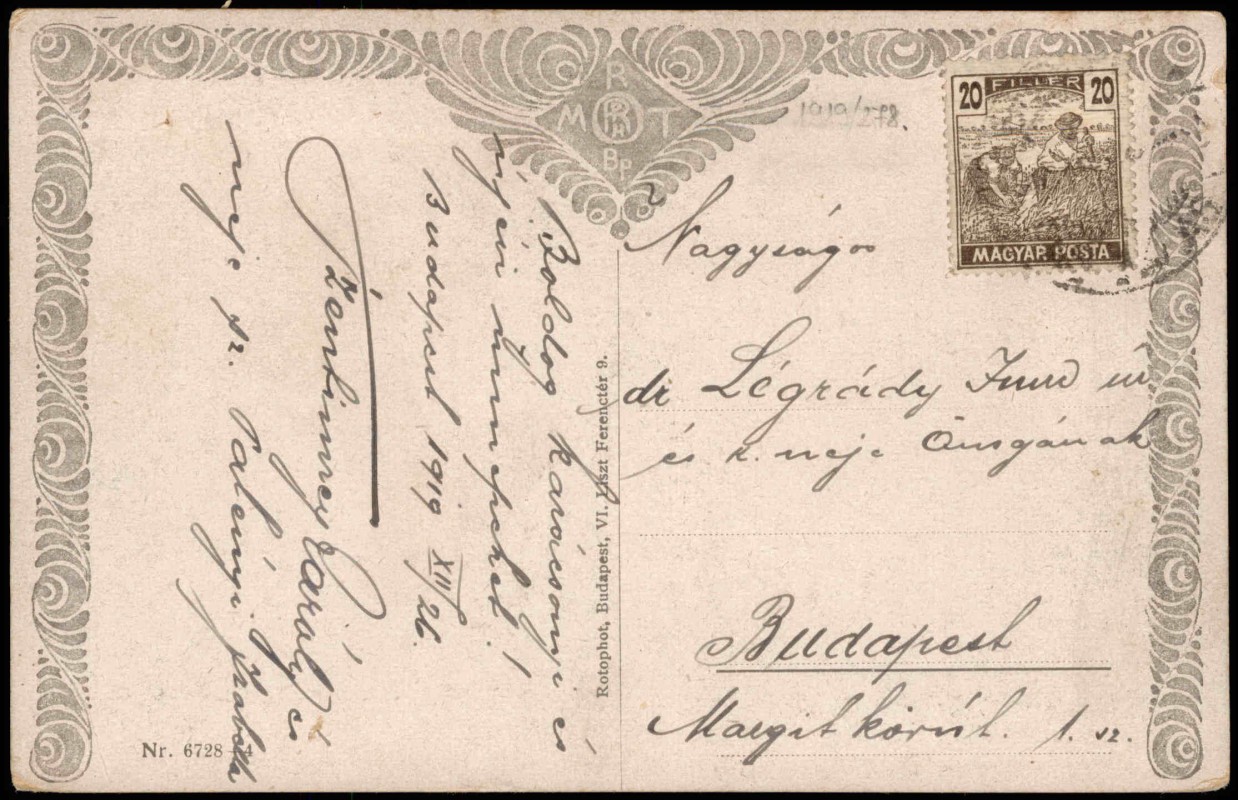 R
M RPH T
BP
1919/278.
20 FILLÉR 20
MAGYAR POSTA
Boldog karácsonyi és
újévi ünnepeket!
Budapest 1919 XII/26.
Szentimrey Károly és
neje sz. Pálényi Sarolta
Nagyságos
dr Légrády Imre úr
és k. neje Önagának
Budapest
Margit körút. 1. sz.
Rotophot, Budapest, VI. Liszt Ferenctér 9.
Nr. 6728-4